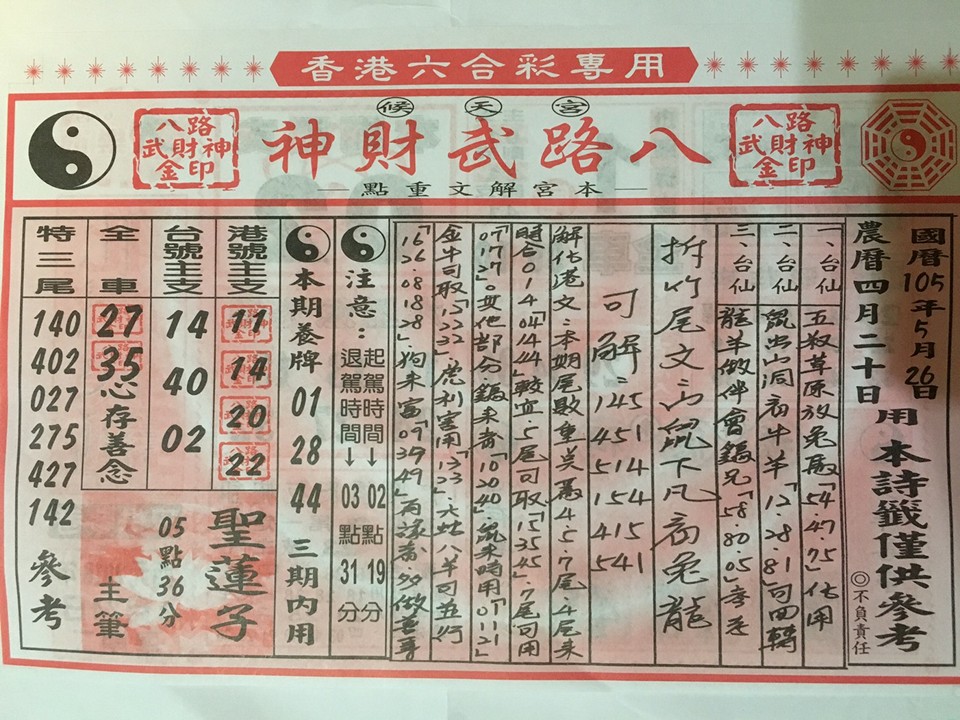 香港六合彩專用
候天宮
八路武財神
八路
武財神
金印
八路
武財神
金印
本宮解文重點
國曆105年5月26日
農曆四月二十日
用本詩籤僅供參考
◎不負責任
一、台仙
五殺草原放兔
「54.47.75」化用
二、台仙
鼠出山洞
牛羊「12.28.81可回轉
三、台仙
龍羊做伴會
「58.80.05」
拆竹尾文
鼠下凡
兔龍
可解:145
451
514
154
415
541
解化港文:本期尾數
4.5.7尾
時合014「04 14 44」較宜.5尾可取「15 35 45」.7尾可用
「07 17 27」其他部分
「10 20 40」鼠來時用「01 11 21」
金牛可取「12 22 32」.虎利害用「13 23」.六蛇八羊可五行
「16 26.08 18 28」.狗來富「09 39 49」
注意:
起駕時間→02點19分
退駕時間→03點31分
本期養牌
01
28
44
三期內用
港號主支
11
14
20
22
台號主支
14
40
02
全車
27
35
心存善念
特三尾
140
402
027
275
427
142
參考
聖蓮子
05點36分
主筆